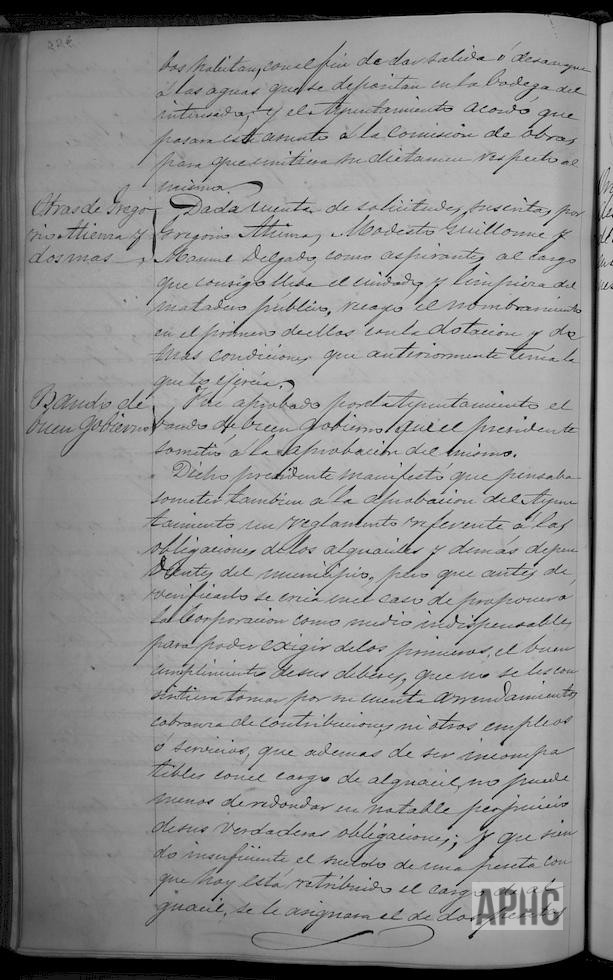 bos habitan, con el fin de dar salida ó desangue
á las aguas que se depositan en la bodega del
interesado; y el Ayuntamiento acordó que
pasara este asunto á la Comisión de obras,
para que emitiera su dictamen respecto al
mismo.
Otras de Grego
rio Atienza y
dos mas
Dada cuenta de solicitudes, suscritas por
Gregorio Atienza, Modesto Guillorme y
Manuel Delgado, como aspirantes al cargo
que consigo lleva el cuidado y limpieza del
matadero público, recayó el nombramiento
en el primero de ellos con la dotacion y de
mas condiciones que anteriormente tenia la
que lo ejercia.
Bando de
buen Gobierno
Fue aprobado por el Ayuntamiento el
bando de buen gobierno que el presidente
sometió á la aprobación del mismo.
Dicho presidente manifestó que pensaba
someter tambien á la aprobación del Ayun
tamiento un reglamento referente á las
obligaciones de los alguaciles y demás depen
dientes del municipio, pero que antes de
verificarlo se creia en el caso de proponer á
la Corporación como medio indispensable,
para poder exigir de los primeros, el buen
cumplimiento de sus deberes, que no se les con
sintiera tomar por su cuenta arrendamientos,
cobranza de contribuciones, ni otros empleos
ó servicios, que ademas de ser incompa
tibles con el cargo de alguacil, no puede
menos de redondar en notable perjuicio
de sus verdaderas obligaciones; y que sien
do insuficiente el sueldo de una peseta con
que hoy está retribuido el cargo de al
guacil, se le asignara el de dos pesetas
APHG